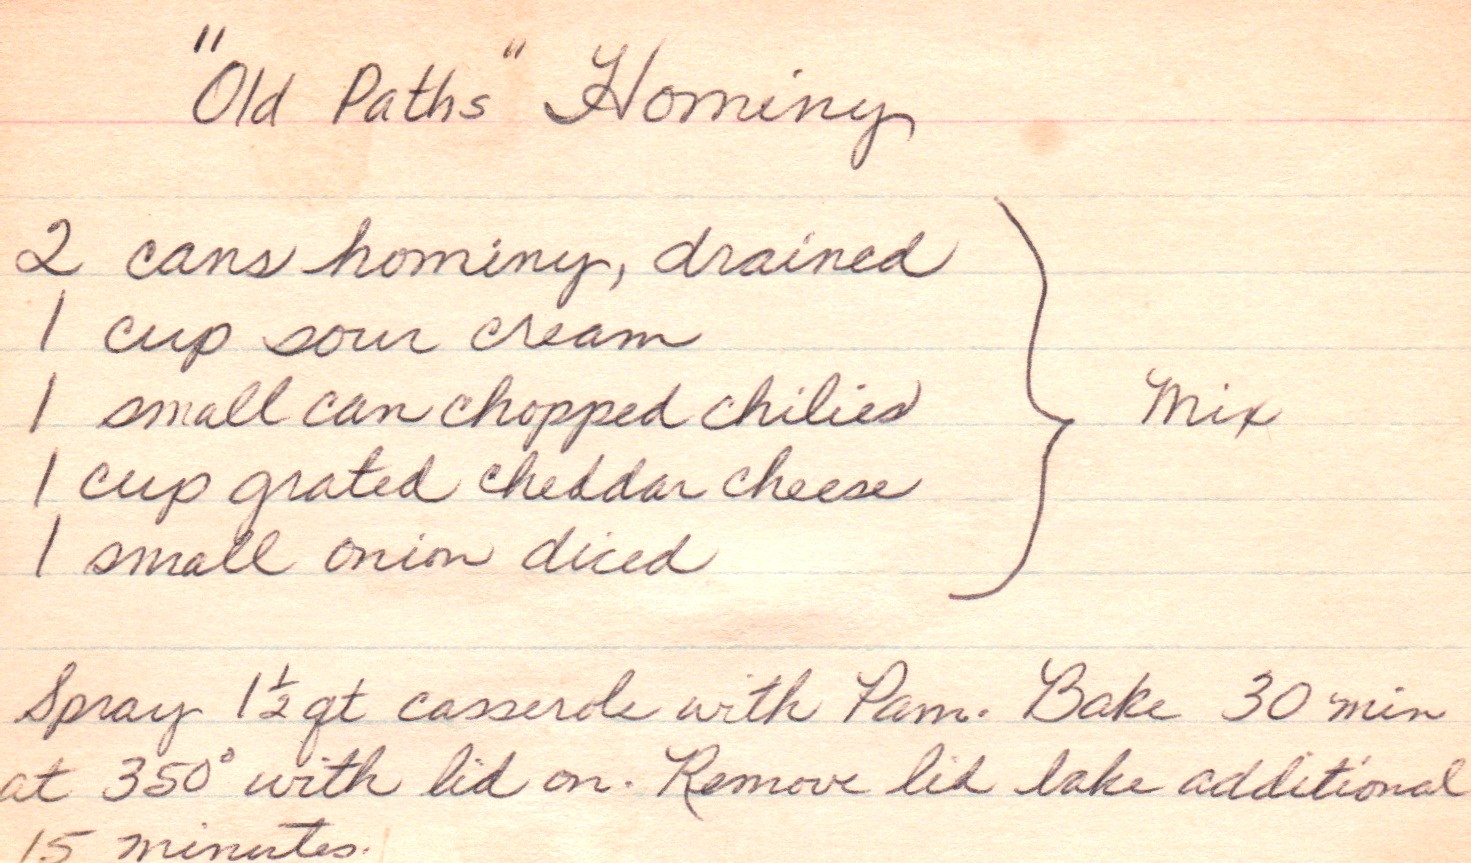 "Old Paths" Hominy
2 cans hominy, drained
1 cup sour cream
1 small can chopped chilies
Mix
1 cup grated cheddar cheese
1 small onion diced
Spray 1½ qt casserole with Pam. Bake 30 min
at 350° with lid on. Remove lid bake additional
15 minutes.